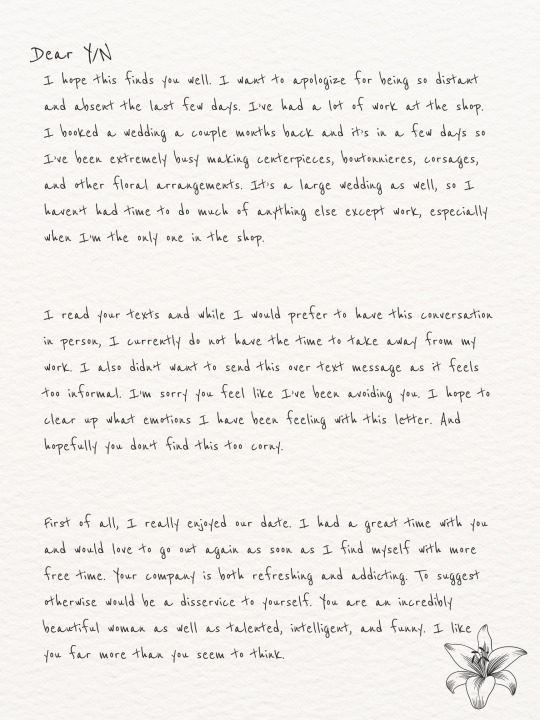 Dear Y/N
I hope this finds you well. I want to apologize for being so distant
and absent the last few days. I've had a lot of work at the shop.
I booked a wedding a couple months back and it's in a few days so
I've been extremely busy making centerpieces, boutonnieres, corsages,
and other floral arrangements. It's a large wedding as well, so I
haven't had time to do much of anything else except work, especially
when I'm the only one in the shop.
I read your texts and while I would prefer to have this conversation
in person, I currently do not have the time to take away from my
work. I also didn't want to send this over text message as it feels
too informal. I'm sorry you feel like I've been avoiding you. I hope to
clear up what emotions I have been feeling with this letter. And
hopefully you don't find this too corny.
First of all, I really enjoyed our date. I had a great time with you
and would love to go out again as soon as I find myself with more
free time. Your company is both refreshing and addicting. To suggest
otherwise would be a disservice to yourself. You are an incredibly
beautiful woman as well as talented, intelligent, and funny. I like
you far more than you seem to think.